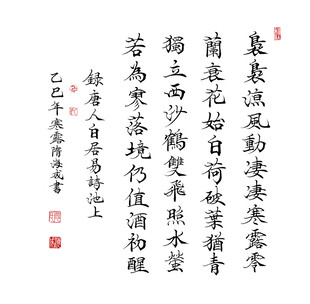 裊裊涼風動凄凄寒露零
蘭衰花始白荷破葉猶青
獨立西沙鶴雙飛照水螢
若為寥落境仍值酒初醒
録唐人白居易詩池上
乙巳年寒露隋海成書